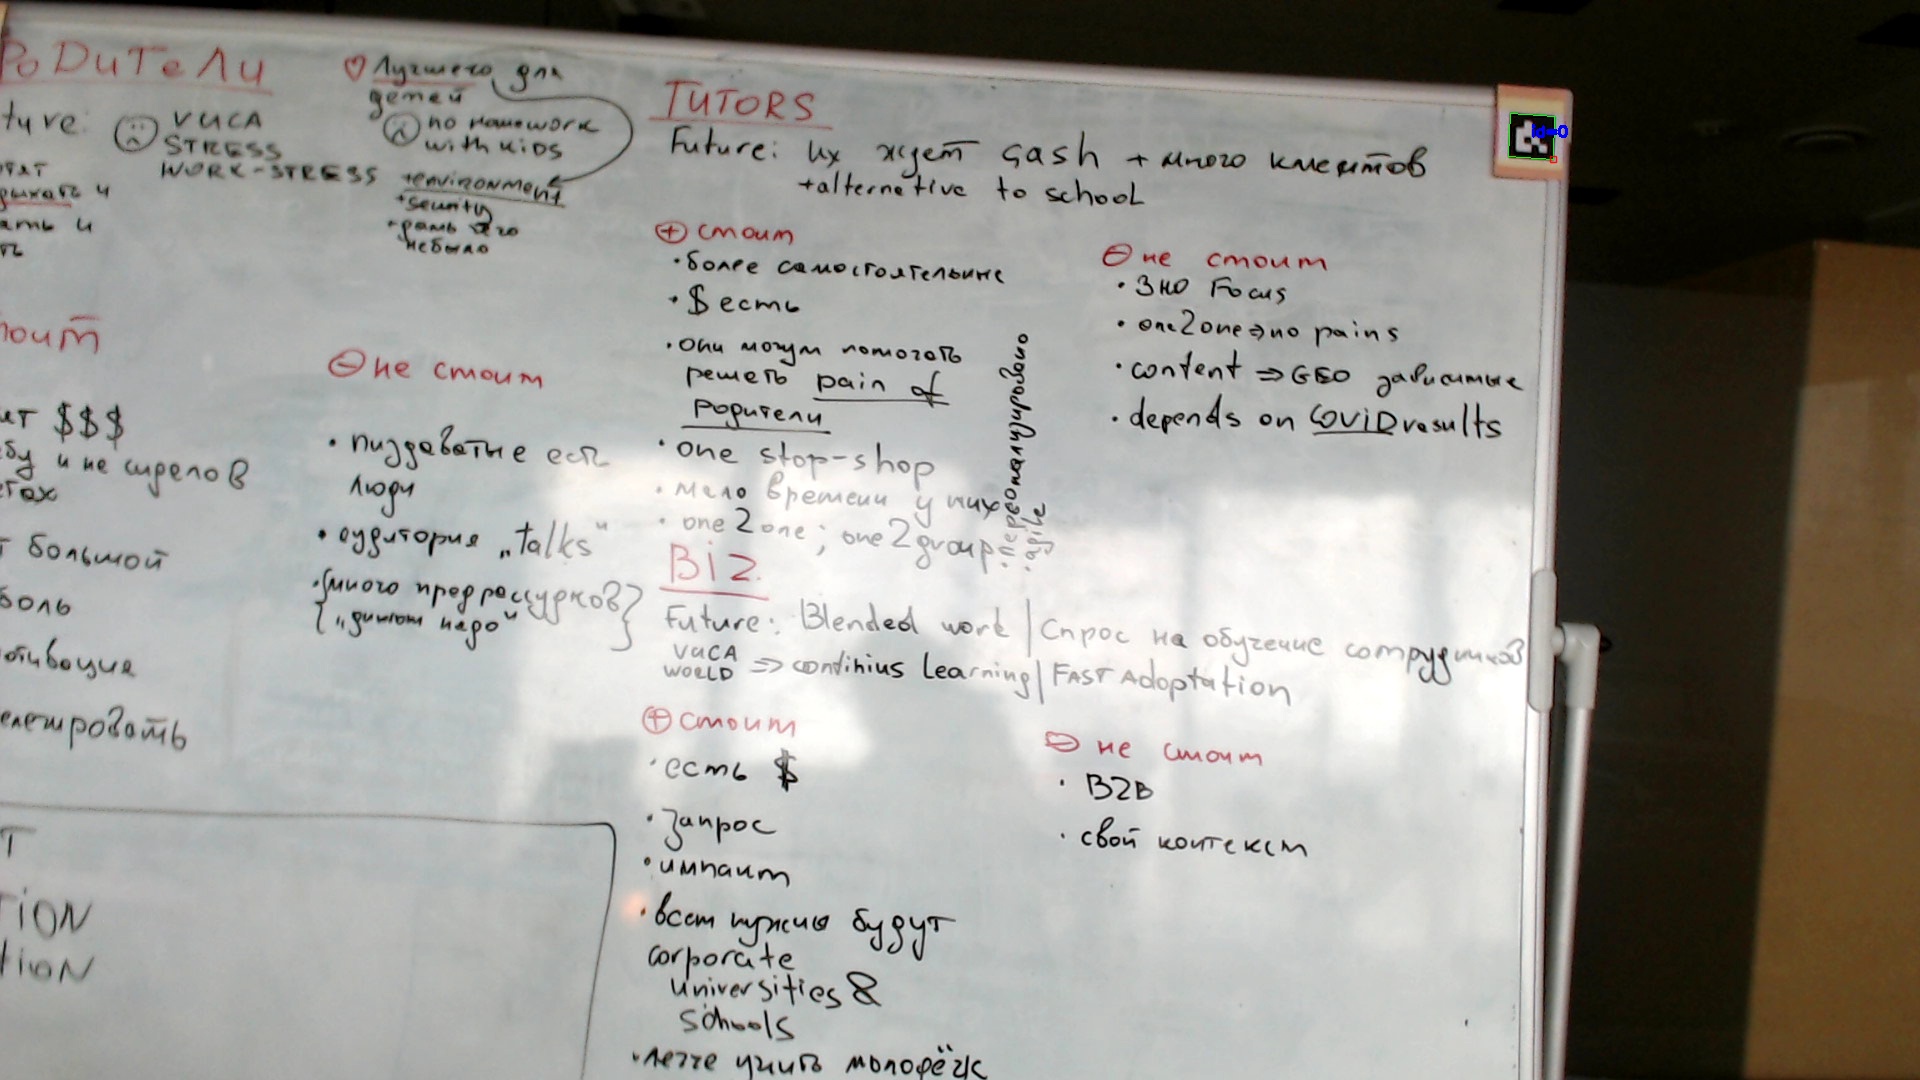 РОДИТЕЛИ
ture:
VUCA
STRESS
WORK-STRESS
Лучшего для
детей
no homework
with kids
+environment
+
небыло
стоит
$$$
большой
боль
не стоит
пиздаватые есть
люди
аудитория „talks"
много предрассудков
„диплом надо"
TUTORS
Future: их ждет cash + много клиентов
+alternative to school
стоит
более самостоятельные
$ есть
они могут помогать
решать pain of
родители
one stop-shop
мало времени у них
one2one; one2group
не стоит
ЗНО Focus
one2one⇒no pains
content ⇒ GEO зависимые
depends on COVID results
Biz.
Future: Blended work | Спрос на обучение сотрудников
VUCA
WORLD ⇒ continius Learning | FAST Adoptation
стоит
есть $
Запрос
импакт
всем нужны будут
corporate
universities &
schools
легче учить молодёжь
не стоит
B2B
свой контекст
TION
tion
id=0